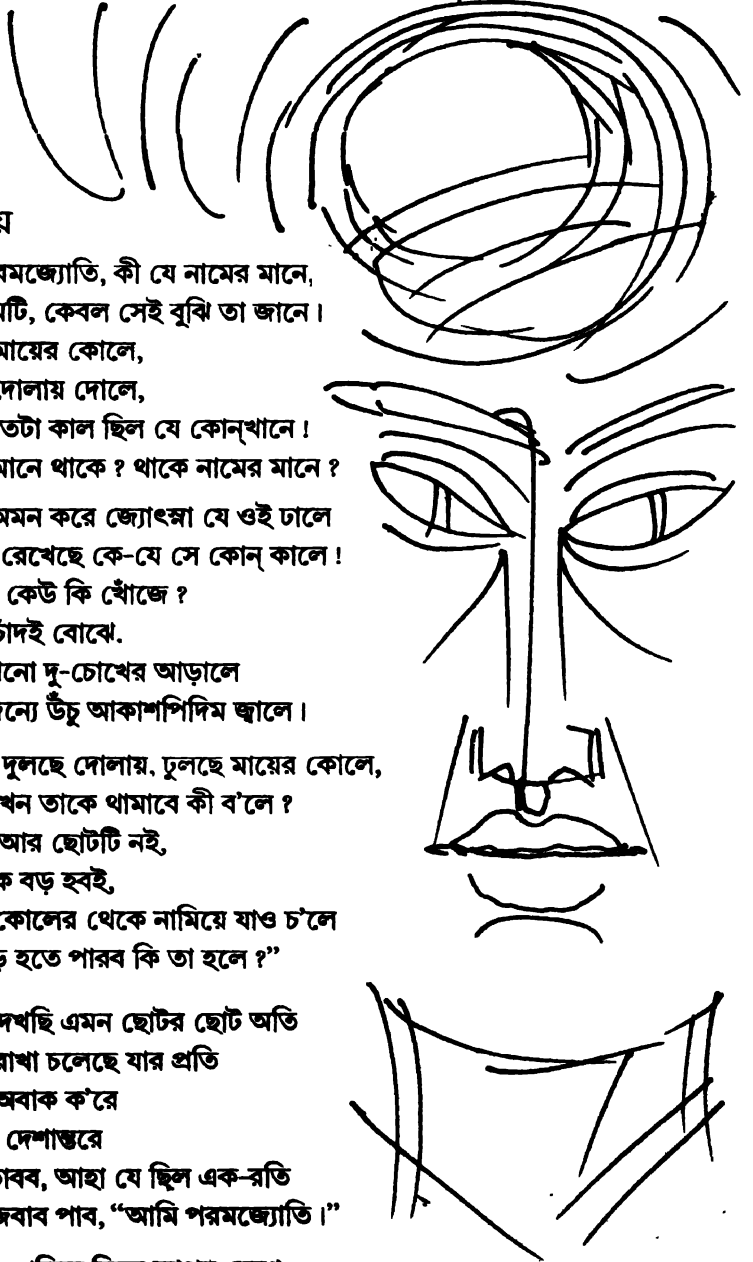 য়
রমজ্যোতি, কী যে নামের মানে,
মটি, কেবল সেই বুঝি তা জানে।
মায়ের কোলে,
দোলায় দোলে,
তটা কাল ছিল যে কোন্‌খানে!
মানে থাকে? থাকে নামের মানে?
অমন করে জ্যোৎস্না যে ওই ঢালে
রেখেছে কে-যে সে কোন্ কালে!
কেউ কি খোঁজে?
চাঁদই বোঝে.
নো দু-চোখের আড়ালে
জন্যে উঁচু আকাশপিদিম জ্বালে।
দুলছে দোলায়, ঢুলছে মায়ের কোলে,
খন তাকে থামাবে কী ব'লে?
আর ছোটটি নই,
ক বড় হবই,
কোলের থেকে নামিয়ে যাও চ'লে
ড় হতে পারব কি তা হলে?”
দেখছি এমন ছোটর ছোট অতি
রাখা চলেছে যার প্রতি
অবাক ক'রে
দেশান্তরে
ভাবব, আহা যে ছিল এক-রতি
জবাব পাব, “আমি পরমজ্যোতি।”